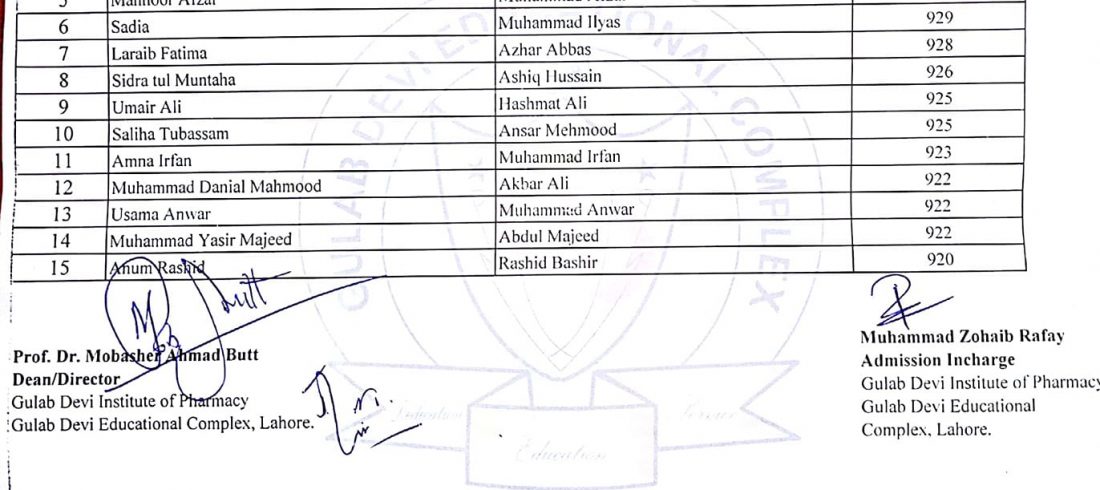 5 Mahnoor Afzal
6 Sadia Muhammad Ilyas 929
7 Laraib Fatima Azhar Abbas 928
8 Sidra tul Muntaha Ashiq Hussain 926
9 Umair Ali Hashmat Ali 925
10 Saliha Tubassam Ansar Mehmood 925
11 Amna Irfan Muhammad Irfan 923
12 Muhammad Danial Mahmood Akbar Ali 922
13 Usama Anwar Muhammad Anwar 922
14 Muhammad Yasir Majeed Abdul Majeed 922
15 Anum Rashid Rashid Bashir 920
GULAB DEVI EDUCATIONAL COMPLEX
Prof. Dr. Mobasher Ahmad Butt
Dean/Director
Gulab Devi Institute of Pharmacy
Gulab Devi Educational Complex, Lahore.
Muhammad Zohaib Rafay
Admission Incharge
Gulab Devi Institute of Pharmacy
Gulab Devi Educational
Complex, Lahore.
Service
Education